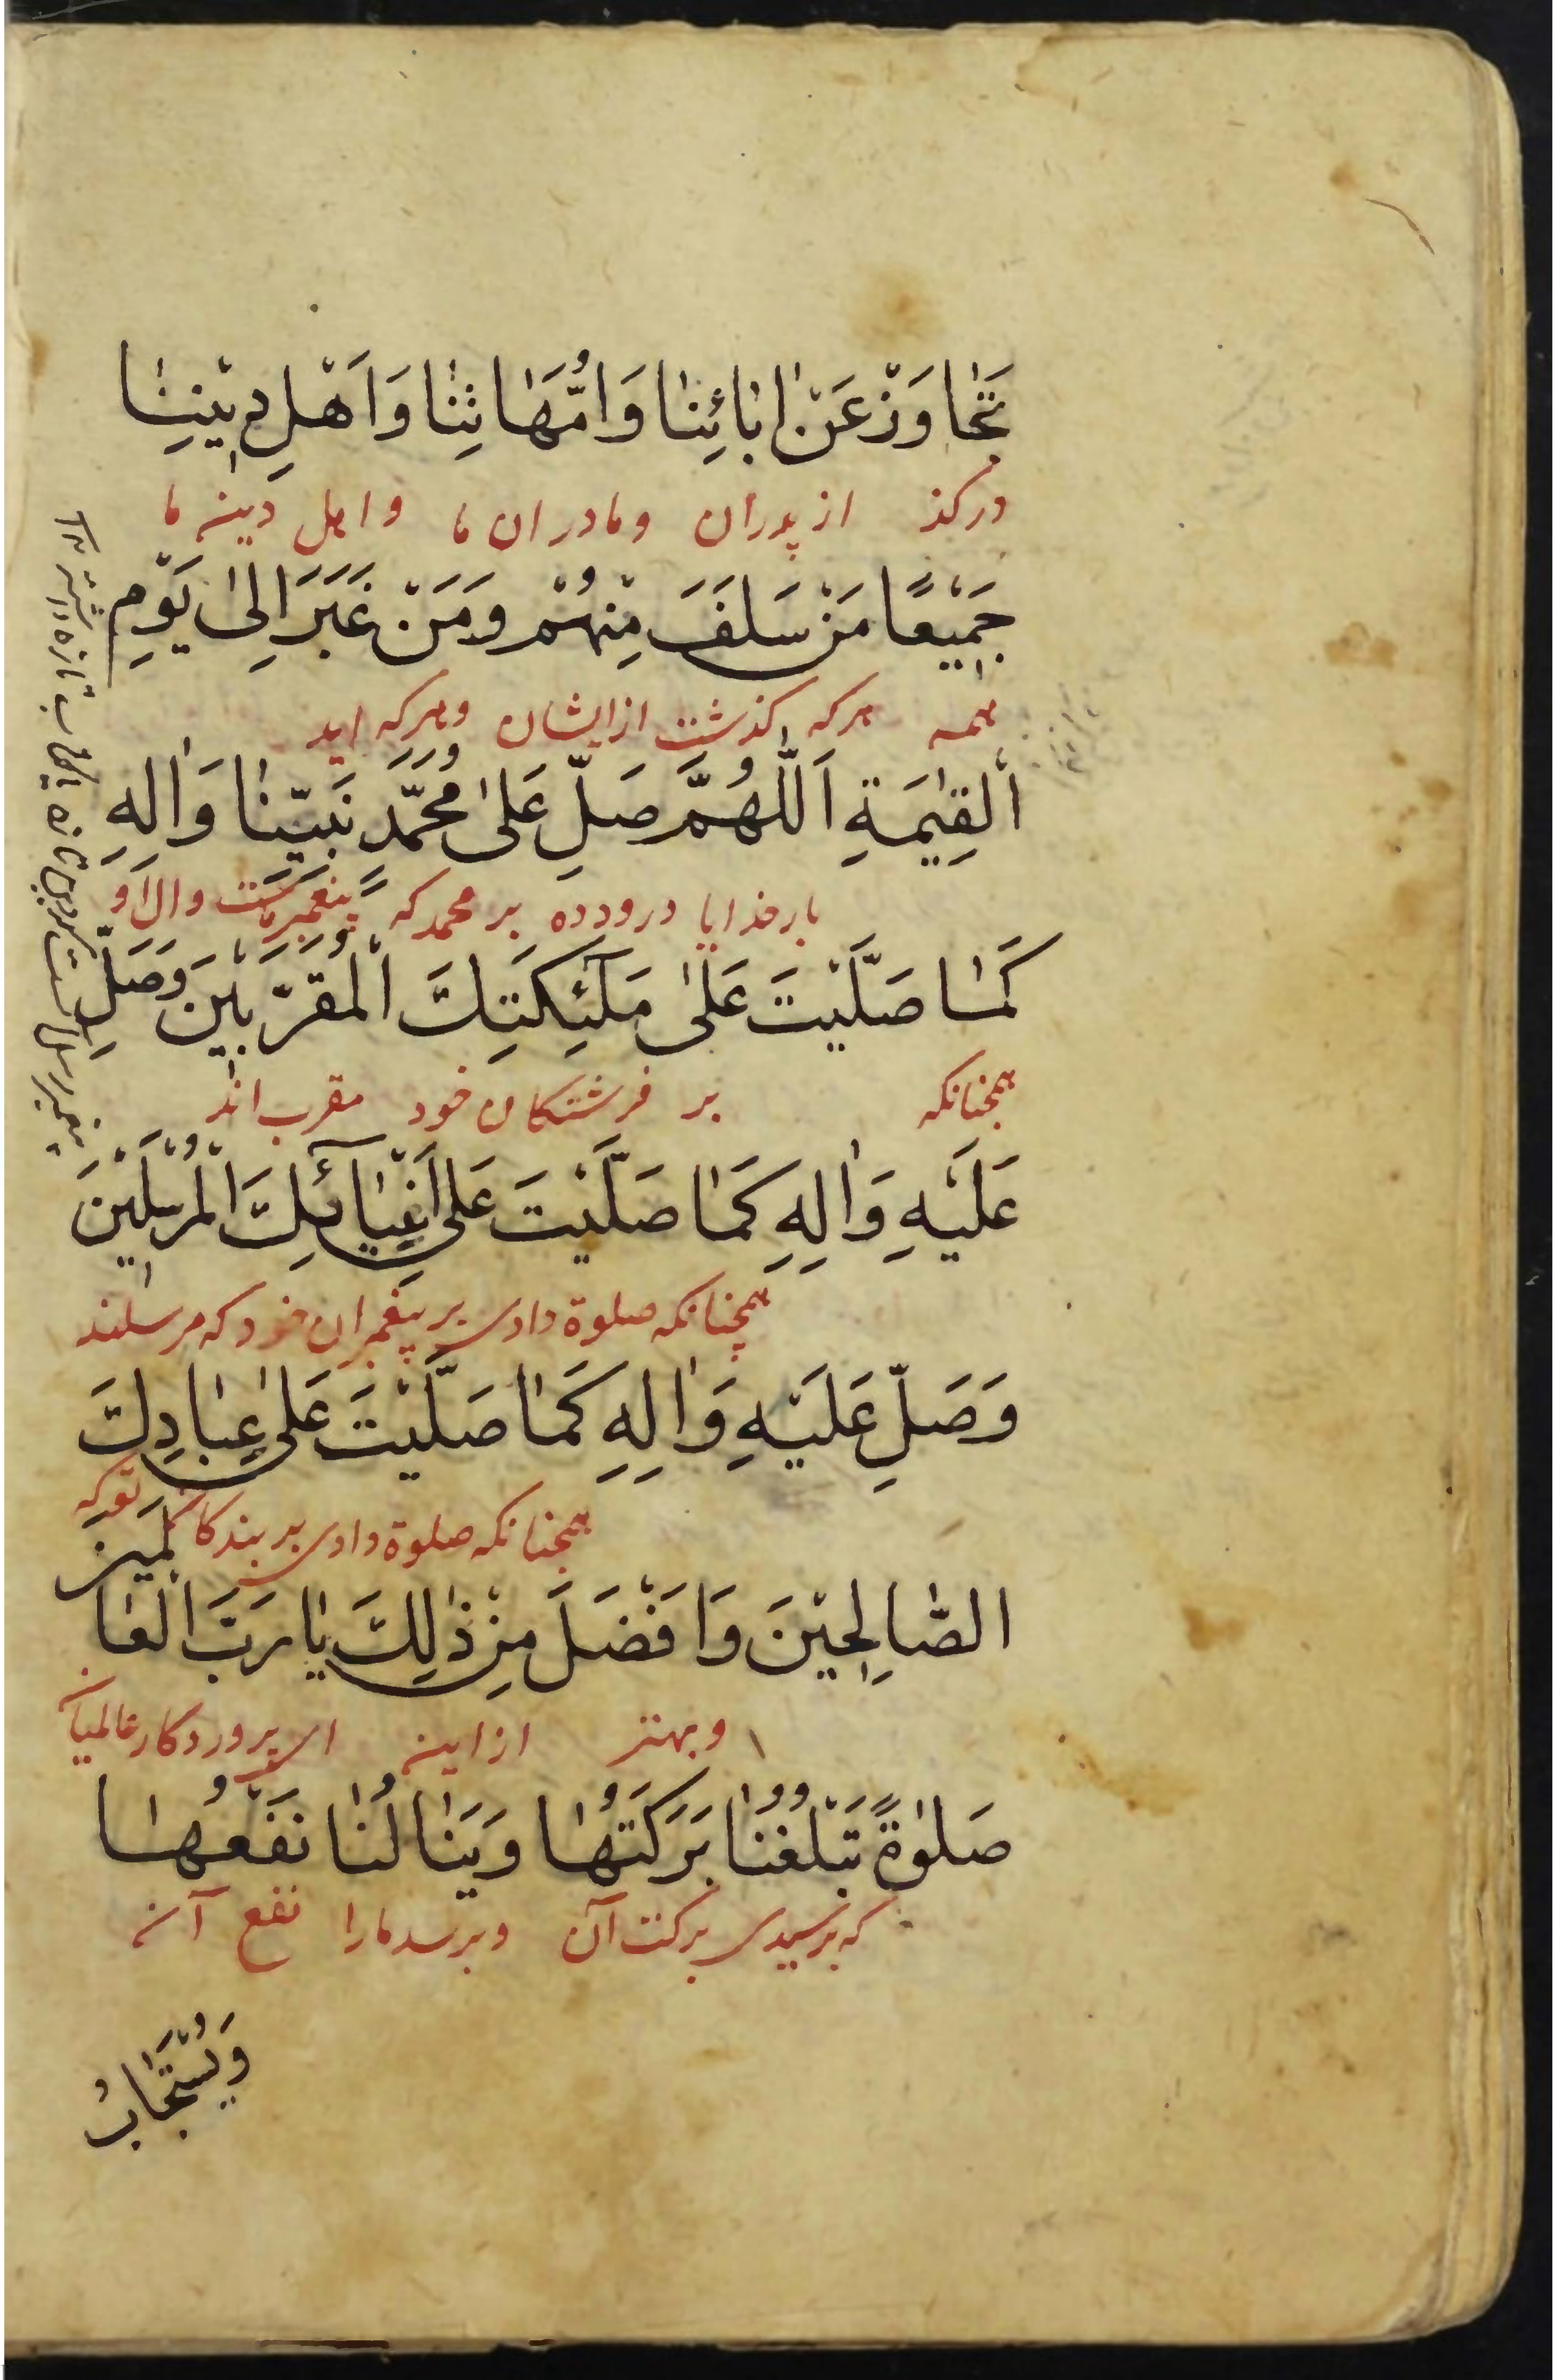 تَجٰاوَزْ عَنْ اٰبٰائِنٰا وَاُمَّهٰاتِنٰا وَاَهْلِ دِيْنِنٰا
درکذ از پدران و مادران ما و اهل دین ما
جَمِيْعًا مَنْ سَلَفَ مِنْهُمْ وَمَنْ غَبَرَ اِلٰى يَوْمِ
همه هرکه کذشت از ایشان و هرکه اید
الْقِيٰمَةِ اَللّٰهُمَّ صَلِّ عَلىٰ مُحَمَّدٍ نَبِيِّنٰا وَاٰلِهِ
بار خدایا درود ده بر محمد که پیغمبر ماست و ال او
كَمٰا صَلَّيْتَ عَلىٰ مَلٰٓئِكَتِكَ الْمُقَرَّبِيْنَ وَصَلِّ
همجنانکه بر فرشتکان خود مقرب اند
عَلَيْهِ وَاٰلِهِ كَمٰا صَلَّيْتَ عَلىٰ اَنْبِيٰآئِكَ الْمُرْسَلِيْنَ
همچنانکه صلوة دادی بر پیغمبران خود که مرسلند
وَصَلِّ عَلَيْهِ وَاٰلِهِ كَمٰا صَلَّيْتَ عَلىٰ عِبٰادِكَ
همجنانکه صلوة دادی بر بندکان تو که
الصّٰالِحِيْنَ وَاَفْضَلَ مِنْ ذٰلِكَ يٰا رَبَّ الْعٰالَمِيْنَ
و بهتر از این ای پروردکار عالمیان
صَلٰوةً تَبْلُغُنٰا بَرَكَتُهٰا وَيَنٰالُنٰا نَفْعُهٰا
که برسیدی برکت آن و برسد ما را نفع آن
وَيُسْتَجٰابُ